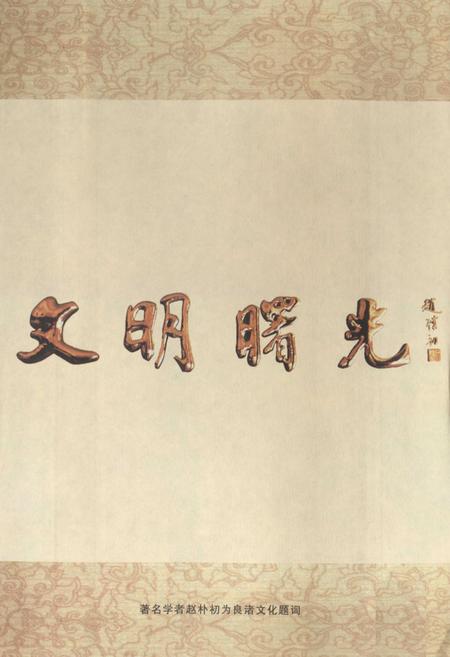 文明曙光
趙樸初
著名学者赵朴初为良渚文化题词